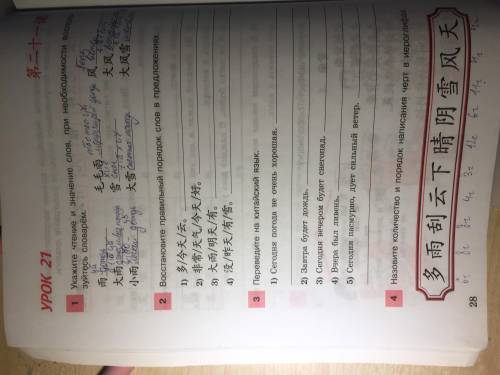 УРОК 21
第二十一课
1 Укажите чтение и значение слов, при необходимости воспользуетесь словарём.
雨 毛毛雨 风
大雨 雪 大风
小雨 大雪 大风雪
2 Восстановите правильный порядок слов в предложениях.
1) 多/今天/云。
2) 非常/天气/今天/好。
3) 大雨/明天/有。
4) 没/昨天/有/雪。
3 Переведите на китайский язык.
1) Сегодня погода не очень хорошая.
2) Завтра будет дождь.
3) Сегодня вечером будет снегопад.
4) Вчера был ливень.
5) Сегодня пасмурно, дует сильный ветер.
4 Назовите количество и порядок написания черт в иероглифах.
多雨刮云下晴阴雪风天
28